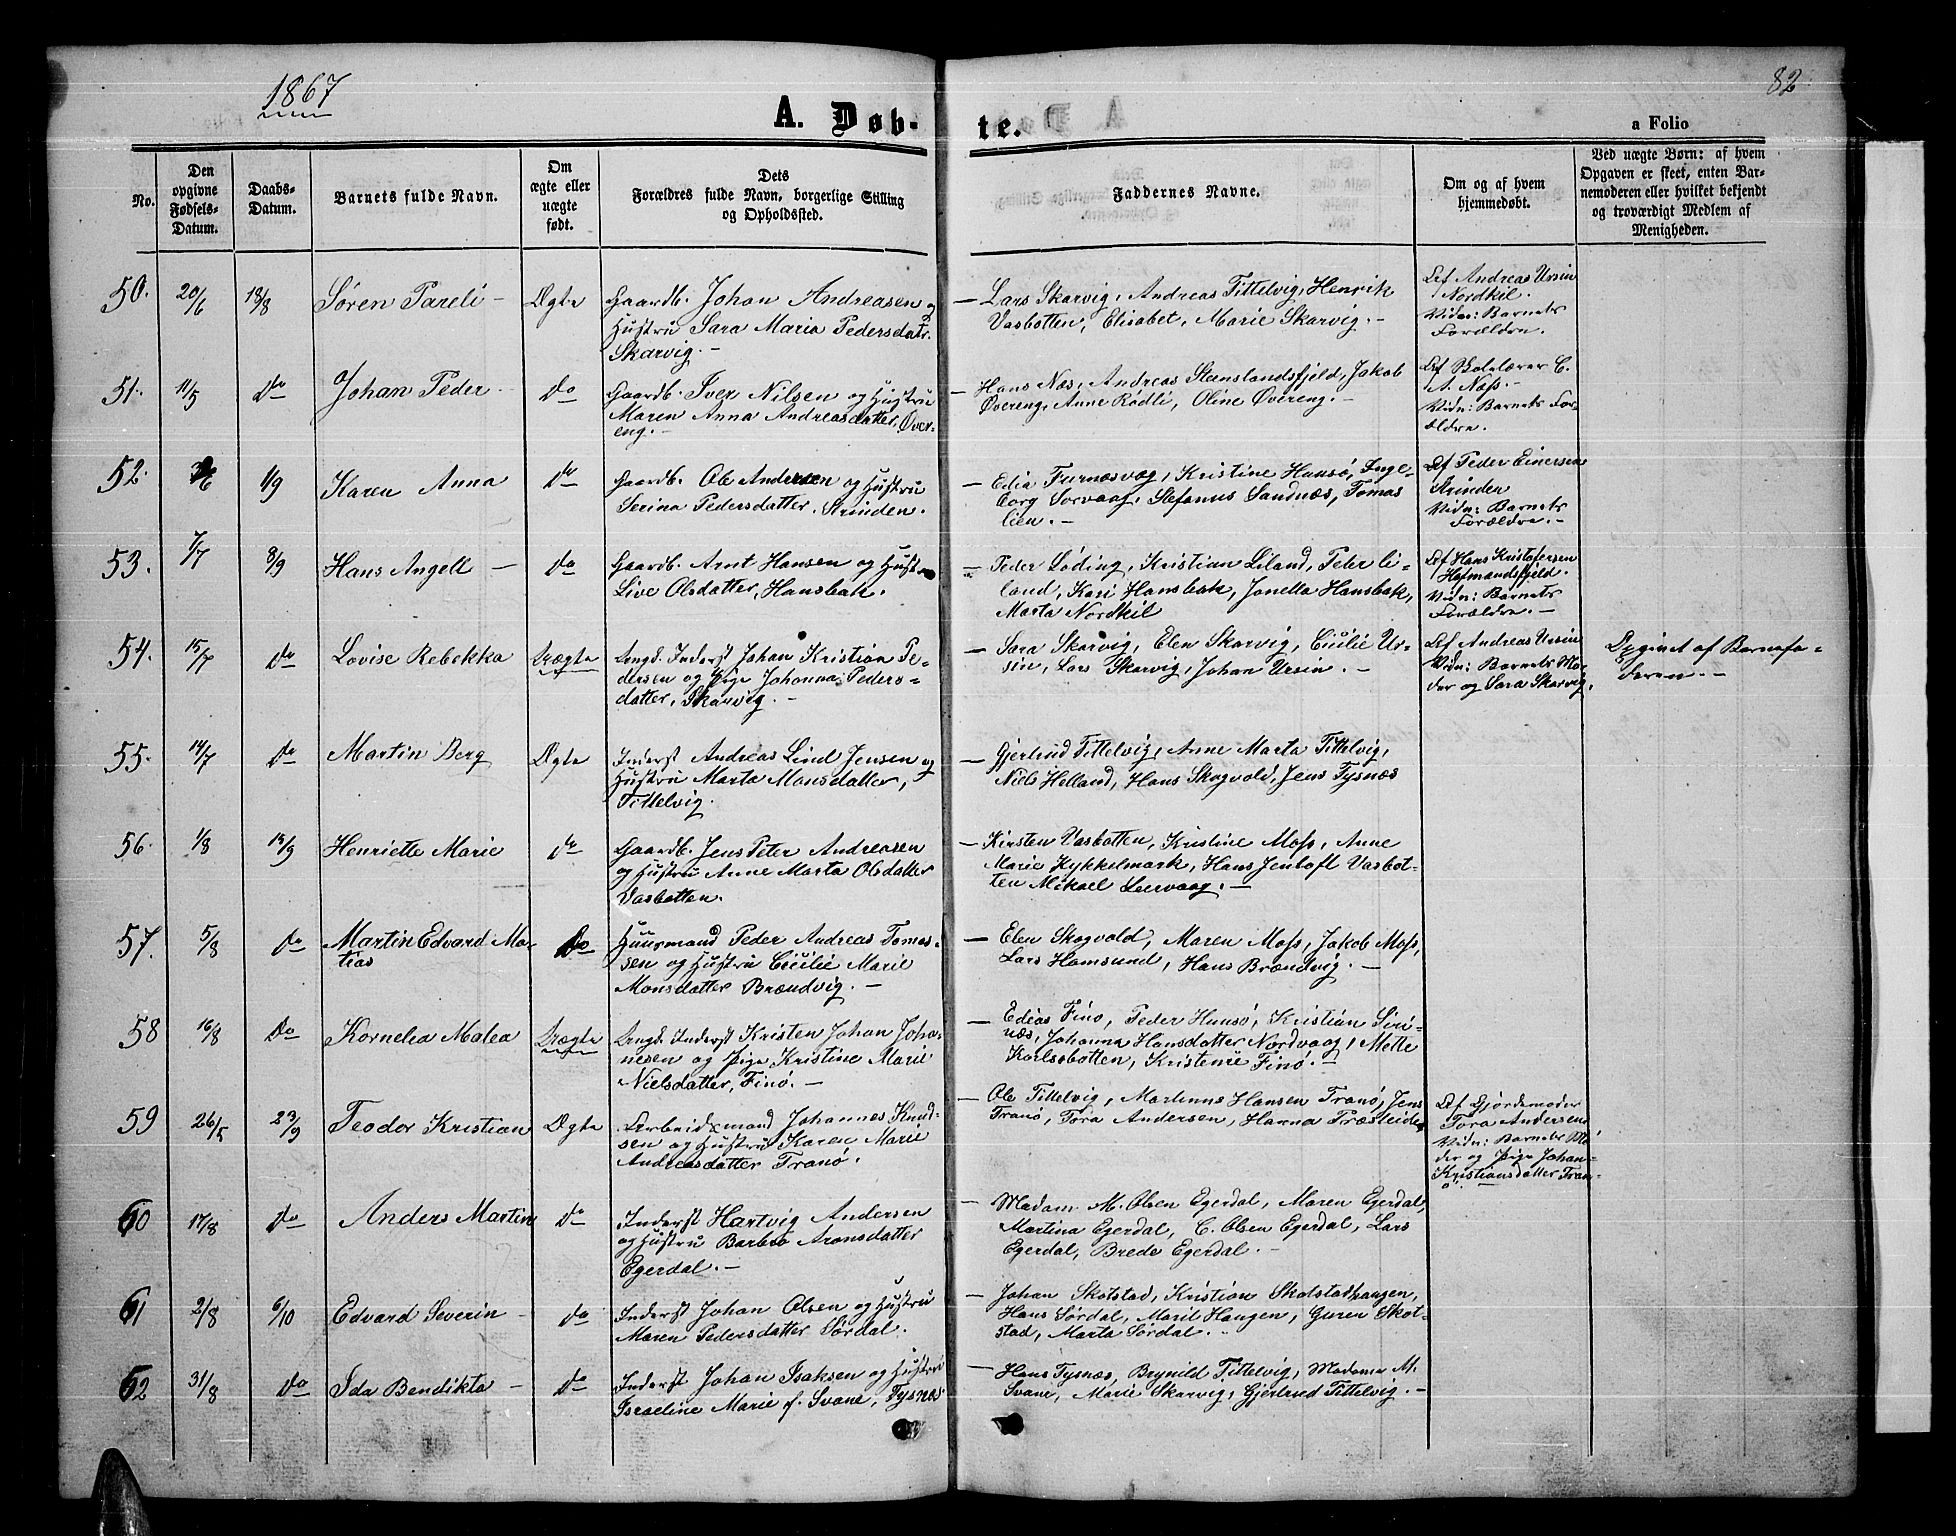 1867
82
A. Døb-
te.
a Folio
No.
Den opgivne Fødsels-Datum.
Daabs-Datum.
Barnets fulde Navn.
Om ægte eller uægte født.
Dets Forældres fulde Navn, borgerlige Stilling og Opholdssted.
Faddernes Navne.
Om og af hvem hjemmedøbt.
Ved uægte Børn: af hvem Opgaven er skeet, enten Bar-nemoderen eller hvilket bekjendt og troværdigt Medlem af Menigheden.
50. 20/6 18/8 Søren Pareli - Ægte Gaardb. Johan Andreasen og
Hustru Sara Maria Pedersdatr.
Skarvig. -
- Lars Skarvig, Andreas Tittelvig, Henrik
Vasbotten, Elisabet, Marie Skarvig. -
Af Andreas Ursin
Nordkil.
Vidn: Barnets
Forældre.
51. 11/5 Do Johan Peder - Do Gaardb. Iver Nilsen og Hustru
Maren Anna Andreasdatter, Over-
eng. -
- Hans Næs, Andreas Steenslandsfjeld, Jakob
Øvereng, Anne Rødli, Oline Øvereng. -
Af Skolelærer C.
A. Moss. -
Vidn: Barnets For-
ældre.
52. 1/9 Karen Anna Do Gaardb. Ole Andersen og Hustru
Serina Pedersdatter. Strinden.
- Edia Furnæsvæg, Kristine Hansø, Inge-
borg Sorvaag, Stefanus Sandnæs, Tomas
lien. -
Af Peder Einersen
Strinden
Vidn: Barnets
Forældre. -
53. 7/7 8/9 Hans Angell - Do Gaardb. Arnt Hansen og Hustru
Live Olsdatter, Hansbak.
- Peder Løding, Kristian Liland, Peter li-
land, Kari Hansbak, Jonetta Hansbak,
Marta Nordkil
Af Hans Kristofersen
Hofmandsfjeld.
Vidn: Barnets
Forældre. -
54. 15/7 Do Lovise Rebekka Uægte Ungd. Inderst Johan Kristian Pe-
dersen og Pige Johanna Peders-
datter, Skarvig. -
- Sara Skarvig, Elen Skarvig, Cecilie Ur-
sin, Lars Skarvig, Johan Ursin. -
Af Andreas Ursin
Vidn: Barnets Mo-
der og Sara Skarvig.
Opgivet af Barnefa-
deren. -
55. 14/7 Do Martin Berg Ægte Inderst Andreas Lind Jensen og
Hustru Marta Monsdatter,
Tittelvig.
- Gjertrud Tittelvig, Anne Marta Tittelvig,
Niels Helland, Hans Skogvold, Jens Tysnæs
56. 1/8 15/9 Henriette Marie Do Gaardb. Jens Peter Andreasen
og Hustru Anne Marta Olsdatter
Vasbotten.
- Kirsten Vasbotten, Kristine Moss, Anne
Marie Kykkelmark, Hans Jentoft Vasbot-
ten Mikael Leervaag. -
57. 5/8 Do Martin Edvard Ma-
tias Do Huusmand Peder Andreas Tomas-
sen og Hustru Cecilie Marie
Monsdatter Brændvig. -
- Elen Skogvold, Maren Moss, Jakob Moss,
Lars Hamsund, Hans Brændvig. -
58 16/8 Do Kornelia Malea Uægte Ungd. Inderst Kristen Johan Joha-
nesen og Pige Kristine Marie
Nielsdatter, Finø. -
- Edias Finø, Peder Hansø, Kristian Siri-
næs, Johanna Hansdatter Nordvaag, Mette
Karlsbotten, Kristense Finø. -
59 26/5 23/9 Teodor Kristian Ægte Arbeidsmand Johannes Knud-
sen og Hustru Karen Marie
Andreasdatter Tranø.
- Ole Tittelvig, Martinus Hansen Tranø, Jens
Tranø, Tora Andersen, Hanna Præsteide
Af Gjordemoder
Tora Andersen
Vidn: Barnets Mo-
der og Pige Johan-
Kristiansdatter Tran-
ø.
60 17/8 Do Anders Martin Do Inderst Hartvig Andersen
og Hustru Barbro Aronsdatter
Egerdal. -
- Madam M. Olsen Egerdal, Maren Egerdal,
Martina Egerdal, C. Olsen Egerdal, Lars
Egerdal, Brede Egerdal. -
61 2/8 6/10 Edvard Severin - Do Inderst Johan Olsen og Hustru
Maren Pedersdatter Sørdal.
- Johan Skotstad, Kristian Skotstadhaugen,
Hans Sørdal, Marit Haugen, Guren Skot-
stad, Marta Sørdal.
62 31/8 Do Ida Bendikta - Do Inderst Johan Isaksen og Hustru
Israeline Marie f. Svane, Tysnæs
- Hans Tysnæs, Brynild Tittelvig, Madame M.
Svane, Marie Skarvig, Gjertrud Tittelvig. -